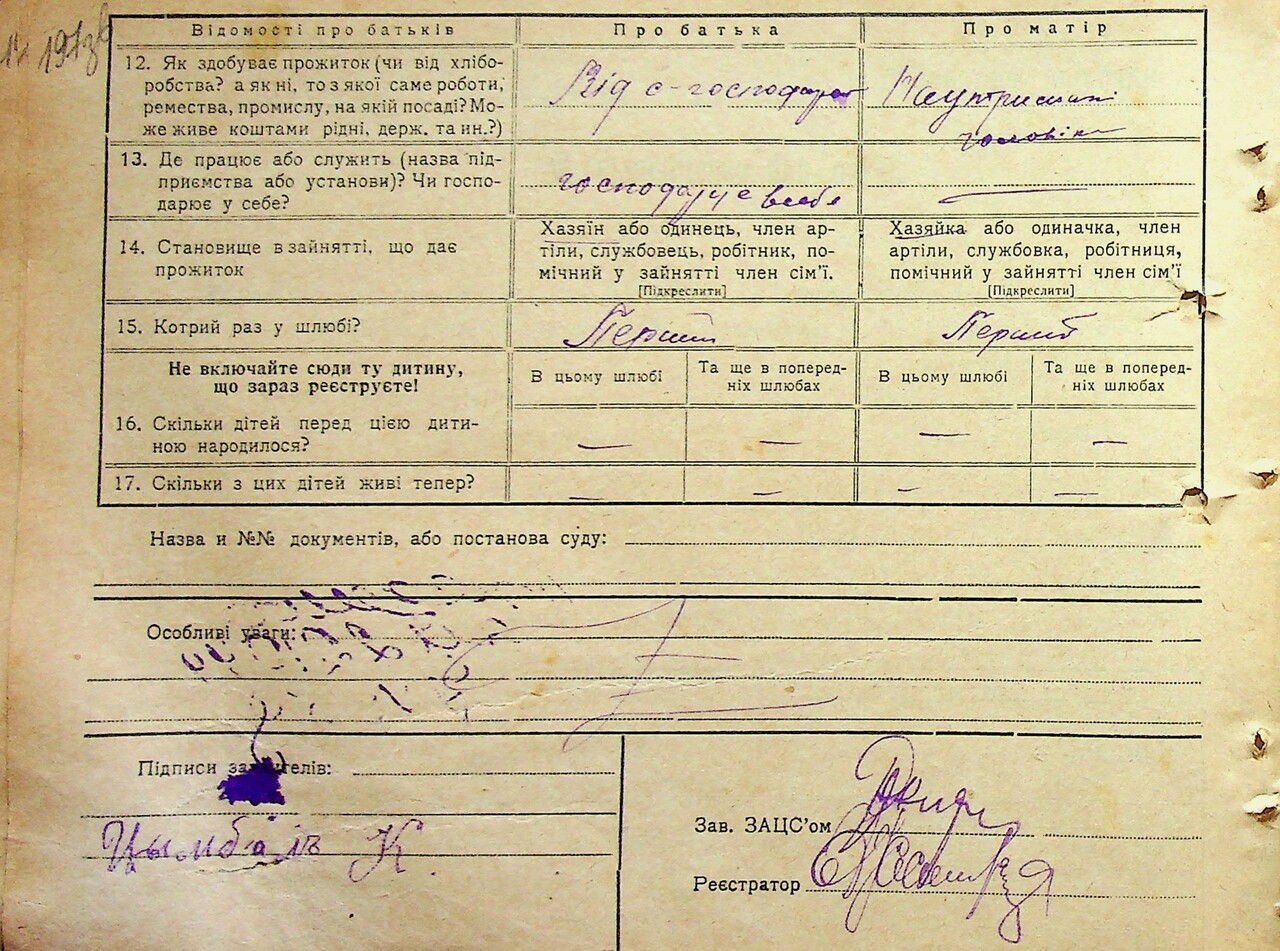 Відомості про батьків Про батька Про матір
12. Як здобуває прожиток (чи від хлібо-
робства? а як ні, то з якої саме роботи,
ремества, промислу, на якій посаді? Мо-
же живе коштами рідні, держ. та ин.?)
Від с-господарст
На утриманні
чоловіка
13. Де працює або служить (назва під-
приємства або установи)? Чи госпо-
дарює у себе?
господарує в себе
14. Становище в зайнятті, що дає
прожиток
Хазяїн або одинець, член ар-
тіли, службовець, робітник, по-
мічний у зайнятті член сім’ї.
[Підкреслити]
Хазяйка або одиначка, член
артіли, службовка, робітниця,
помічний у зайнятті член сім’ї
[Підкреслити]
15. Котрий раз у шлюбі?
Перший Перший
Не включайте сюди ту дитину,
що зараз реєструєте!
В цьому шлюбі
Та ще в поперед-
ніх шлюбах
В цьому шлюбі
Та ще в поперед-
ніх шлюбах
16. Скільки дітей перед цією дити-
ною народилося?
— — — —
17. Скільки з цих дітей живі тепер?
— — — —
Назва и №№ документів, або постанова суду:
Особливі уваги:
Підписи заявителів:
Цымбаль К
Зав. ЗАЦС’ом
Реєстратор